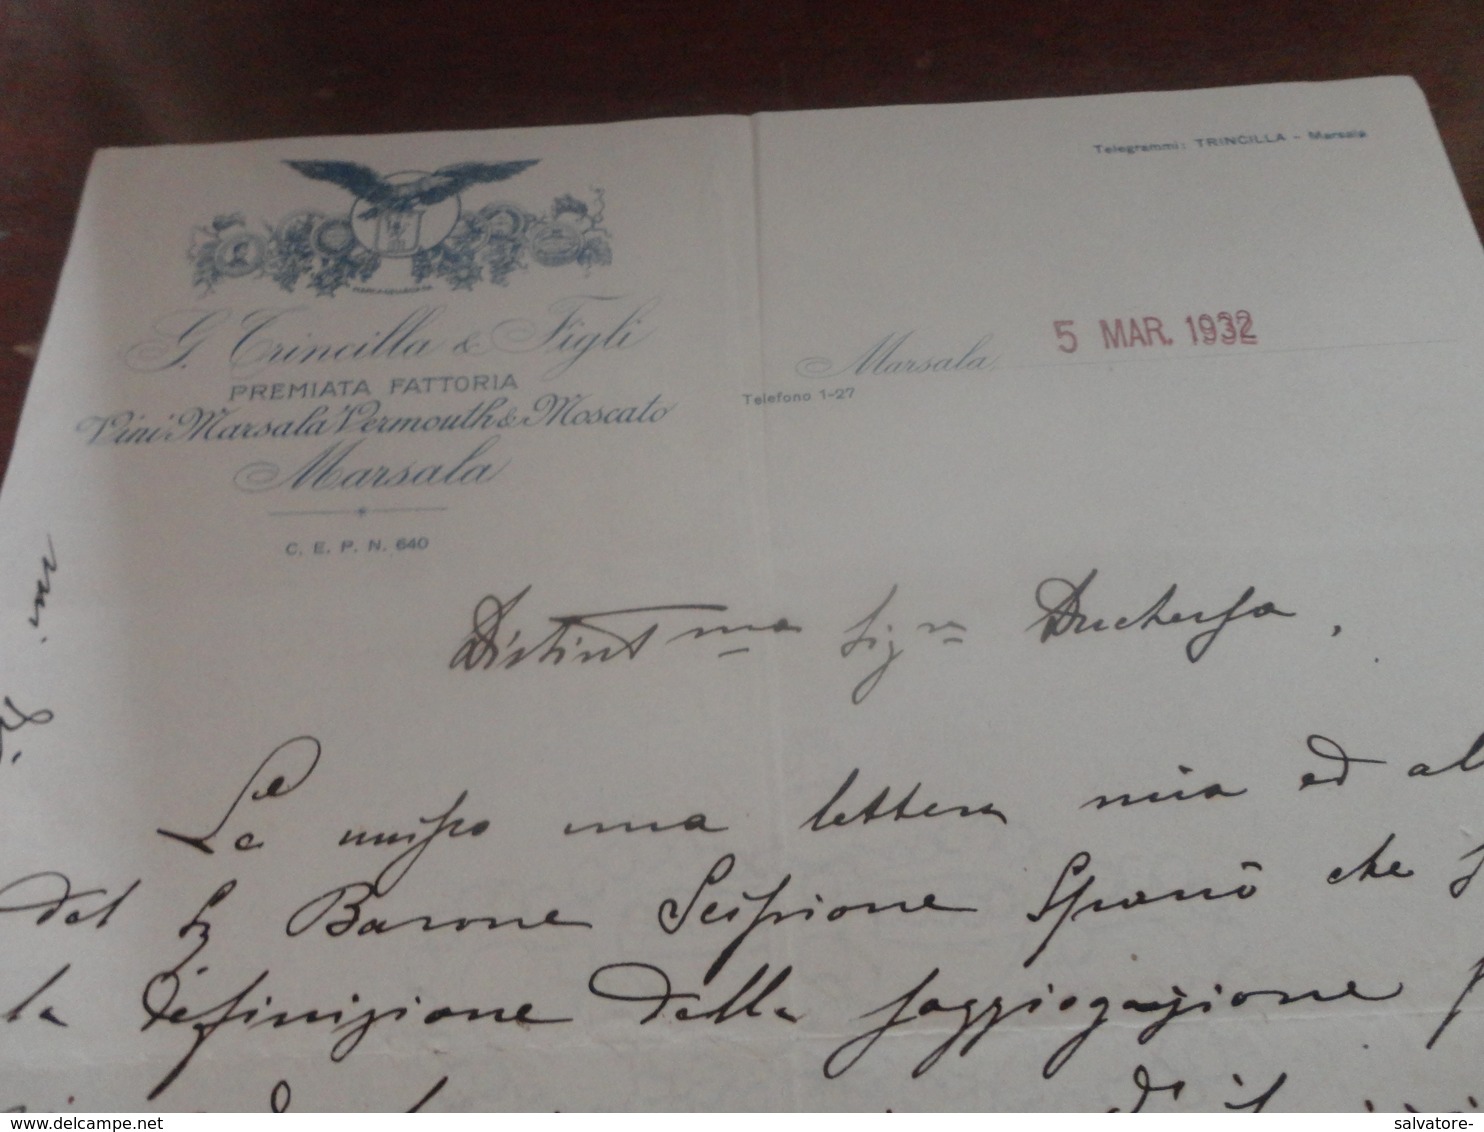 Telegrammi: TRINCILLA - Marsala
G. Trincilla & Figli
PREMIATA FATTORIA
Vini Marsala Vermouth & Moscato
Marsala
C. E. P. N. 640
Marsala, 5 MAR. 1932
Telefono 1-27
Distint ma Sig ra Duchessa,
Le unisco una lettera mia ed al
del Barone Scipione Spanò che
la definizione della
salvatore-